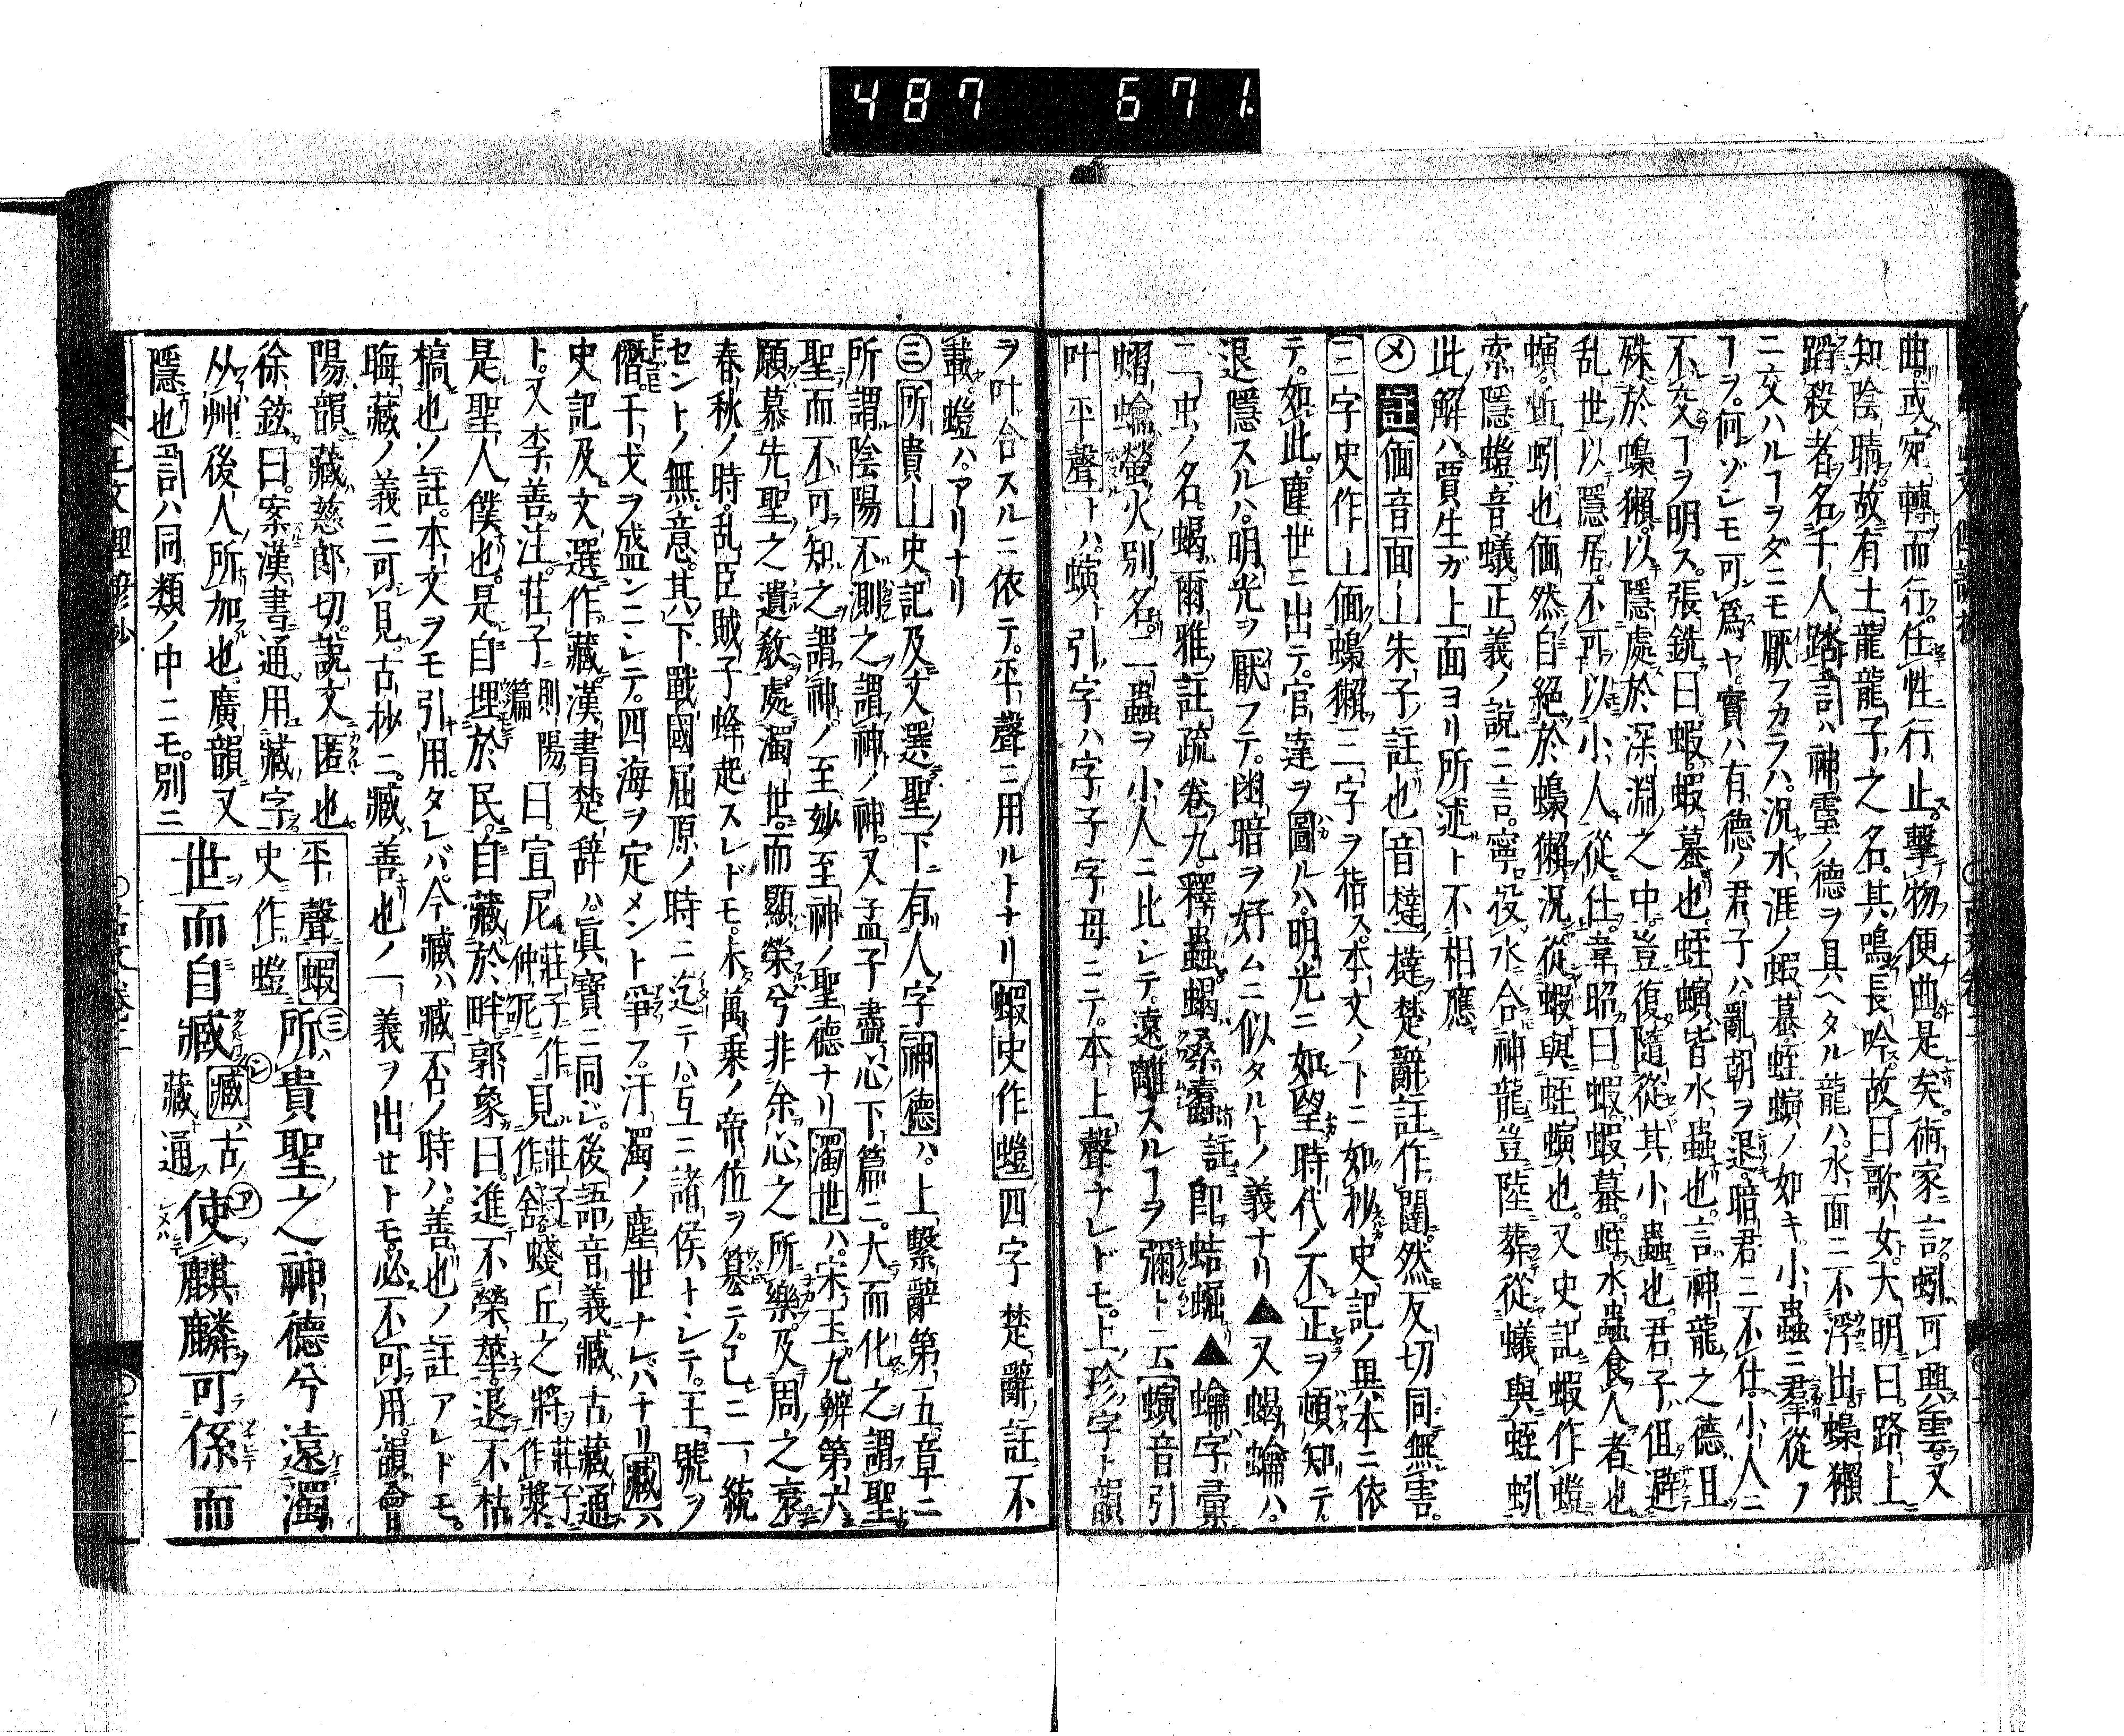 487 671.
曲。或宛轉而行。任性行止。擊物便曲。是矣。術家言。蚓可興雲。又
知陰晴。故有土龍龍子之名。其鳴長吟。故曰歌女。大明曰。路上
蹈殺者名千人踏。訓ハ神靈ノ德ヲ具ヘタル龍ハ。水面ニ不浮出。蟂獺
ニ交ハルヿヲダニモ厭フカラハ。況水涯ノ蝦蟇蛭螾ノ如キ。小蟲ニ羣從ノ
ヿヲ。何ゾシモ可爲ヤ。實ハ有德ノ君子ハ。亂朝ヲ退。暗君ニ不仕。小人ニ
不交ヿヲ明ス。張銑曰蝦。蝦蟇也。蛭螾皆水蟲也。言神龍之德。且
殊於蟂獺。以隱處於深淵之中。豈復隨從其小蟲也。君子但避
乱世以隱居。不可以小人從仕。韋昭曰。蝦蝦蟇。蛭水蟲食人者也
螾。蚯蚓也。偭然自絕於蟂獺。況從蝦與蛭螾也。又史記蝦作螘
索隱螘音蟻。正義ノ說ニ言。寧役水合神龍。豈陸葬從蟻與蛭蚓
此解ハ。賈生ガ上面ヨリ所述ト不相應
㋱註偭音面―朱子註也音撻撻楚辭註作闥。然反切同無害。
三字史作―偭蟂獺三字ヲ指ス。本文ノ下ニ如抄史記ノ異本ニ依
テ。如此。塵世ニ出テ。官達ヲ圖ルハ。明光ニ如望時代ノ不正ヲ頓知テ
退隱スルハ。明光ヲ厭フテ。幽暗ヲ好ムニ似タルトノ義ナリ▲又蝎蠄ハ。
二虫ノ名。蝎爾雅註疏卷九釋蟲蝎桑蠹註即蛣𧌑▲蠄字彙
熠蠄螢火別名。二蟲ヲ小人ニ比シテ。遠離スルヿヲ彌ト云螾音引
叶平聲トハ。螾引字ハ字子字母ニテ。本上聲ナレドモ。上珍字ト韻
ヲ叶合スルニ依テ。平聲ニ用ルトナリ蝦史作螘四字楚辭註不
載螘ハ。アリナリ
㊂所貴―史記及文選聖ノ下ニ有人字神德ハ。上繫辭第五章ニ
所謂陰陽不測之謂神ノ神。又孟子盡心下篇ニ。大而化之謂聖
聖而不可知之謂神ノ至妙至神ノ聖德ナリ濁世ハ。宋玉九辨第六
願慕先聖之遺敎。處濁世。而顯榮兮非余心之所樂。及周ノ之衰
春秋ノ時。乱臣賊子蜂起スレドモ。未萬乗ノ帝位ヲ簒テ。己ニ一統
セントノ無意。其下戰國屈原ノ時ニ迄テハ。互ニ諸侯トシテ。王號ヲ
僭。干戈ヲ盛ンニシテ。四海ヲ定メント爭フ。汗濁ノ塵世ナレバナリ臧ハ
史記及文選作藏。漢書楚辭ハ。眞寶ニ同ジ。後語音義臧古藏通
ト。又李善注。莊子則陽篇曰。宜尼莊子作仲尼見莊子作舍蟻丘之將莊子作漿。
是聖人僕也。是自埋於民。自藏於畔郭象曰進不榮華。退不枯
槁也ノ註。本文ヲモ引用タレバ。今臧ハ臧否ノ時ハ。善也ノ註アレドモ。
晦藏ノ義ニ可見。古抄ニ。臧善也ノ一義ヲ出セトモ。必不可用。韻會
陽韻。藏慈郎切。說文匿也。
徐鉉曰。案漢書通用臧字
从艸後人所加也。廣韻又
隱也訓ハ同類ノ中ニモ。別ニ
平聲蝦
史作螘㊂所貴聖之神德兮遠濁
世而自臧臧古
藏通使麒麟可係而